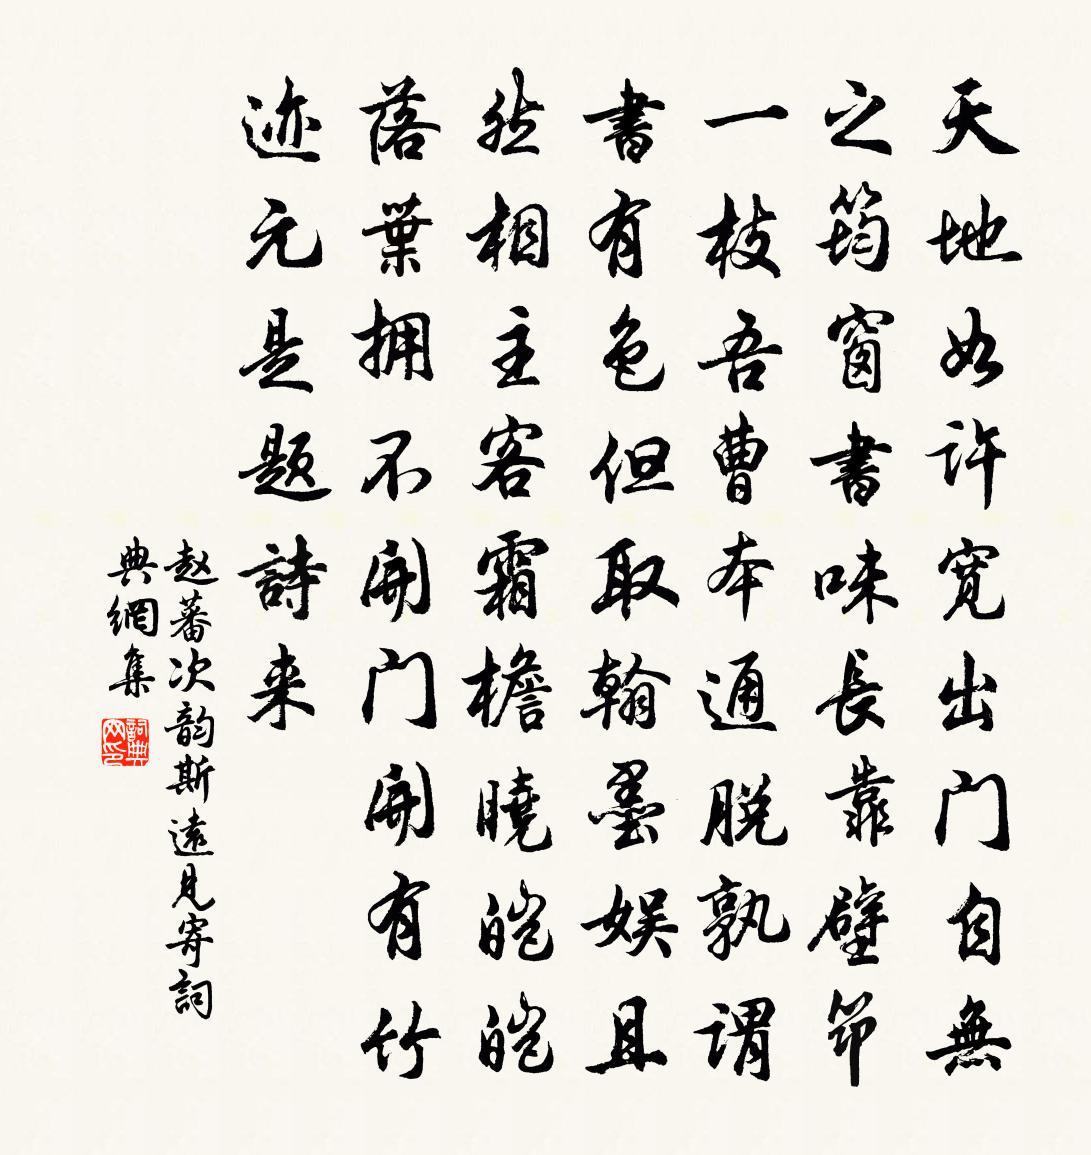 天地如许寬出门自無
之筠窗書味長靠壁筇
一枝吾曹本通脱孰谓
書有色但取翰墨娱且
然相主客霜檐曉皑皑
落葉拥不開门開有竹
迹元是题詩来
赵蕃次韵斯遠見寄詞
典網集
詞典网印